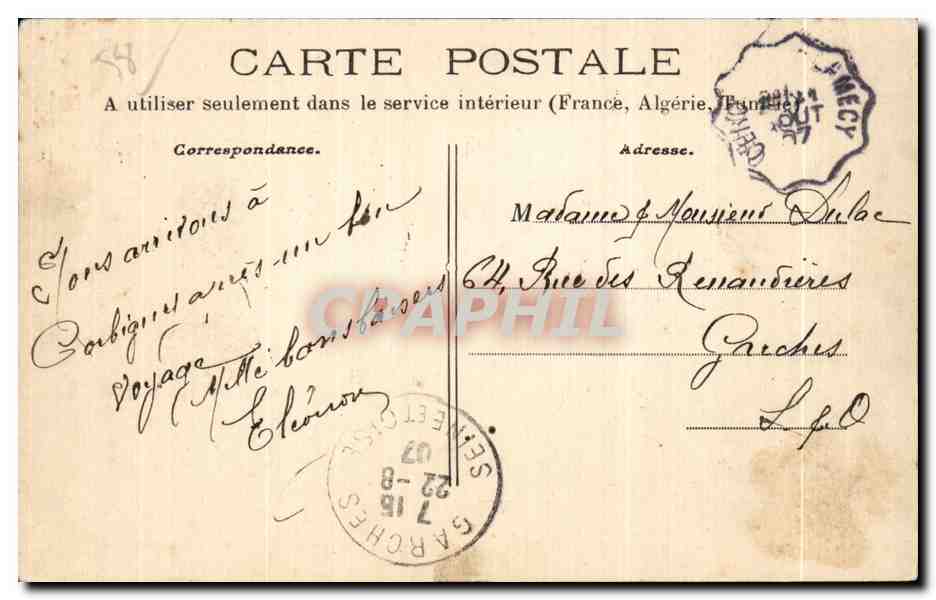 58
CARTE POSTALE
A utiliser seulement dans le service intérieur (France, Algérie, Tunisie)
Correspondance.
Adresse.
AMECY
OUT
07
Nous arrivons à
Corbigny après un bon
voyage
Mille bons baisers
Eléonore
Madame & Monsieur Dulac
64, Rue des Renardières
Garches
S & O
CPAPHIL
GARCHES
7 15
22 - 8
07
SEINE ET OISE